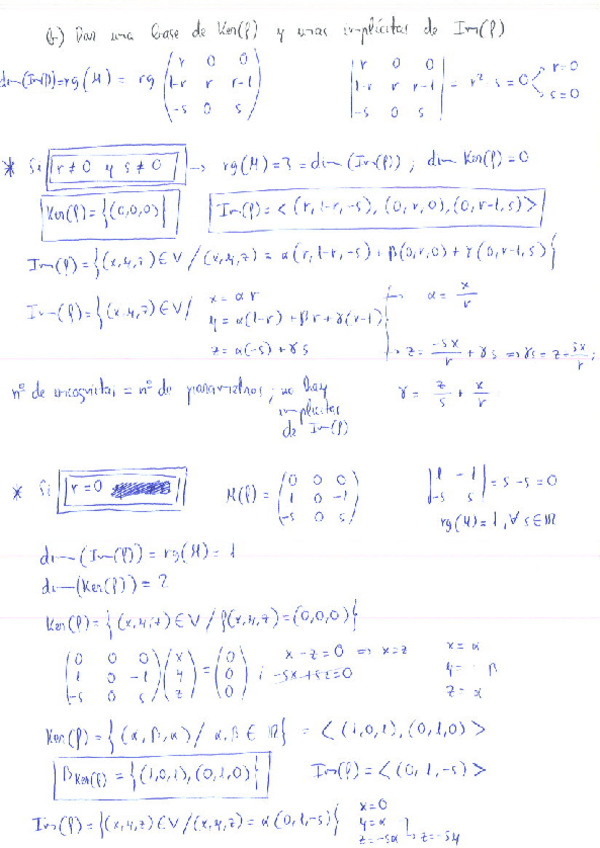 b) Dar una base de Ker(f) y unas implícitas de Im(f)
dim(Im f) = rg(M) = rg ( r 0 0 / 1-r r r-1 / -s 0 s ) | r 0 0 / 1-r r r-1 / -s 0 s | = r² s = 0 < r=0 / s=0
* Si r≠0 y s≠0 → rg(M)=3 = dim(Im(f)); dim Ker(f) = 0
Ker(f) = {(0,0,0)} Im(f) = < (r, 1-r, -s), (0, r, 0), (0, r-1, s) >
Im(f) = {(x,y,z) ∈ V / (x,y,z) = α(r, 1-r, -s) + β(0,r,0) + γ(0, r-1, s)}
Im(f) = {(x,y,z) ∈ V / x = αr → α = x/r
y = α(1-r) + βr + γ(r-1)
z = α(-s) + γs } → z = -sx/r + γs ⇒ γs = z + sx/r;
nº de incognitas = nº de parametros; no hay γ = z/s + x/r
implícitas
de Im(f)
* Si r=0 M(f) = ( 0 0 0 / 1 0 -1 / -s 0 s ) | 1 -1 / -s s | = s-s = 0
rg(M) = 1, ∀ s ∈ ℝ
dim(Im(f)) = rg(M) = 1
dim(Ker(f)) = 2
Ker(f) = {(x,y,z) ∈ V / f(x,y,z) = (0,0,0)}
( 0 0 0 / 1 0 -1 / -s 0 s ) ( x / y / z ) = ( 0 / 0 / 0 ) ; x - z = 0 ⇒ x = z x = α
-sx + sz = 0 y = β
z = α
Ker(f) = {(α, β, α) / α, β ∈ ℝ} = < (1,0,1), (0,1,0) >
B Ker(f) = {(1,0,1), (0,1,0)} Im(f) = < (0, 1, -s) >
Im(f) = {(x,y,z) ∈ V / (x,y,z) = α(0,1,-s)} x = 0
y = α
z = -sα → z = -sy